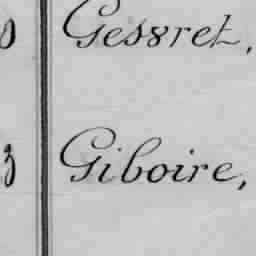 Gesvret,
Giboire,